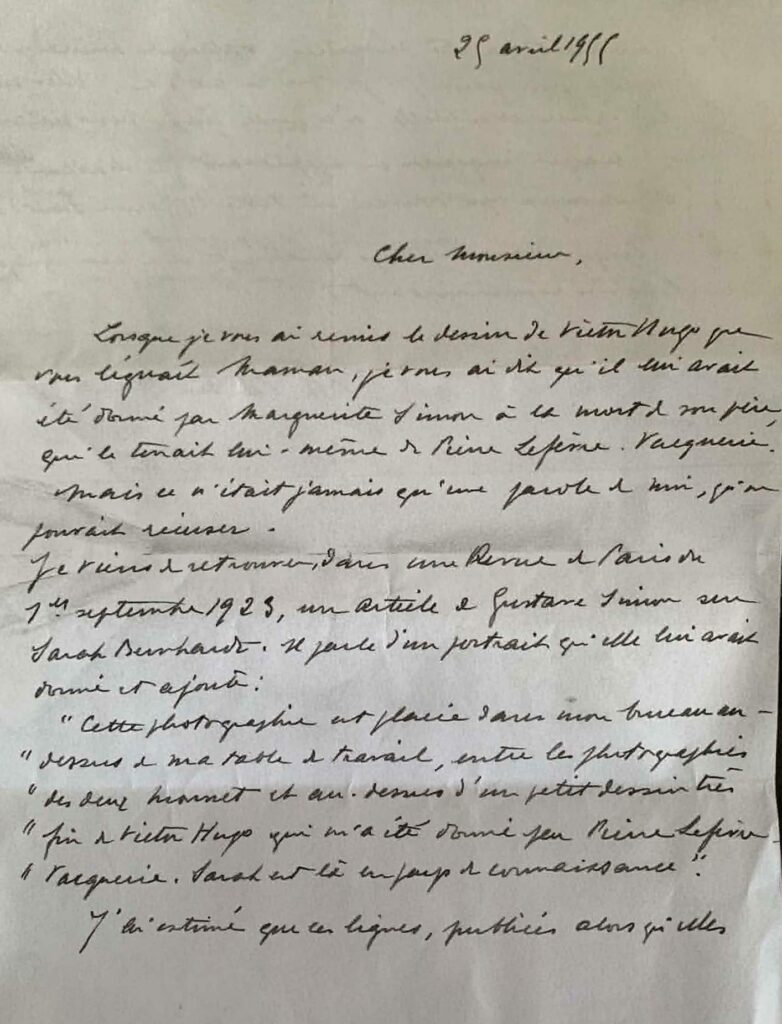 25 avril 1955
Cher Monsieur,
Lorsque je vous ai remis le dessin de Victor Hugo que
vous léguait Maman, je vous ai dit qu'il lui avait
été donné par Marguerite Simon à la mort de son père,
qui le tenait lui-même de Pierre Lefèvre-Vacquerie.
Mais ce n'était jamais qu'une parole de moi, qu'on
pouvait récuser.
Je viens de retrouver, dans une Revue de Paris du
1er septembre 1923, un article de Gustave Simon sur
Sarah Bernhardt. Il parle d'un portrait qu'elle lui avait
donné et ajoute :
"Cette photographie est placée dans mon bureau au-
"dessus de ma table de travail, entre les photographies
"des deux Mounet et au-dessus d'un petit dessin très
"fin de Victor Hugo qui m'a été donné par Pierre Lefèvre-
"Vacquerie. Sarah est là en pays de connaissance".
J'ai estimé que ces lignes, publiées alors qu'elles